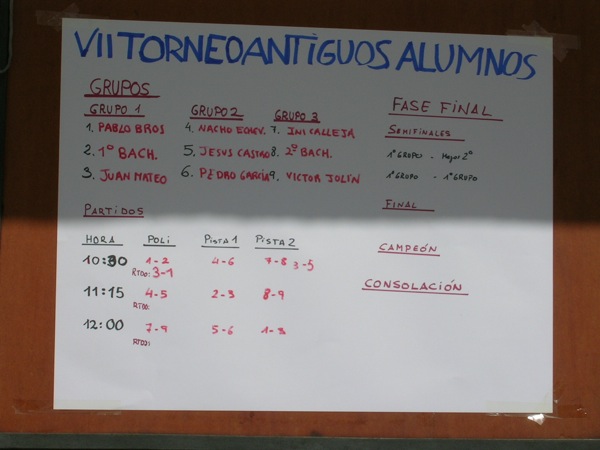 VII TORNEO ANTIGUOS ALUMNOS
GRUPOS
GRUPO 1 GRUPO 2 GRUPO 3
1. PABLO BROS 4. NACHO ECHEV. 7. INI CALLEJA
2. 1º BACH. 5. JESUS CASTRO 8. 2º BACH.
3. JUAN MATEO 6. PEDRO GARCÍA 9. VICTOR JOLÍN
PARTIDOS
HORA POLI PISTA 1 PISTA 2
10:30 1-2 4-6 7-8 3-5
RTDO: 3-1
11:15 4-5 2-3 8-9
RTDO:
12:00 7-9 5-6 1-3
RTDO:
FASE FINAL
SEMIFINALES
1º GRUPO - Mejor 2º
1º GRUPO - 1º GRUPO
FINAL
CAMPEÓN
CONSOLACIÓN